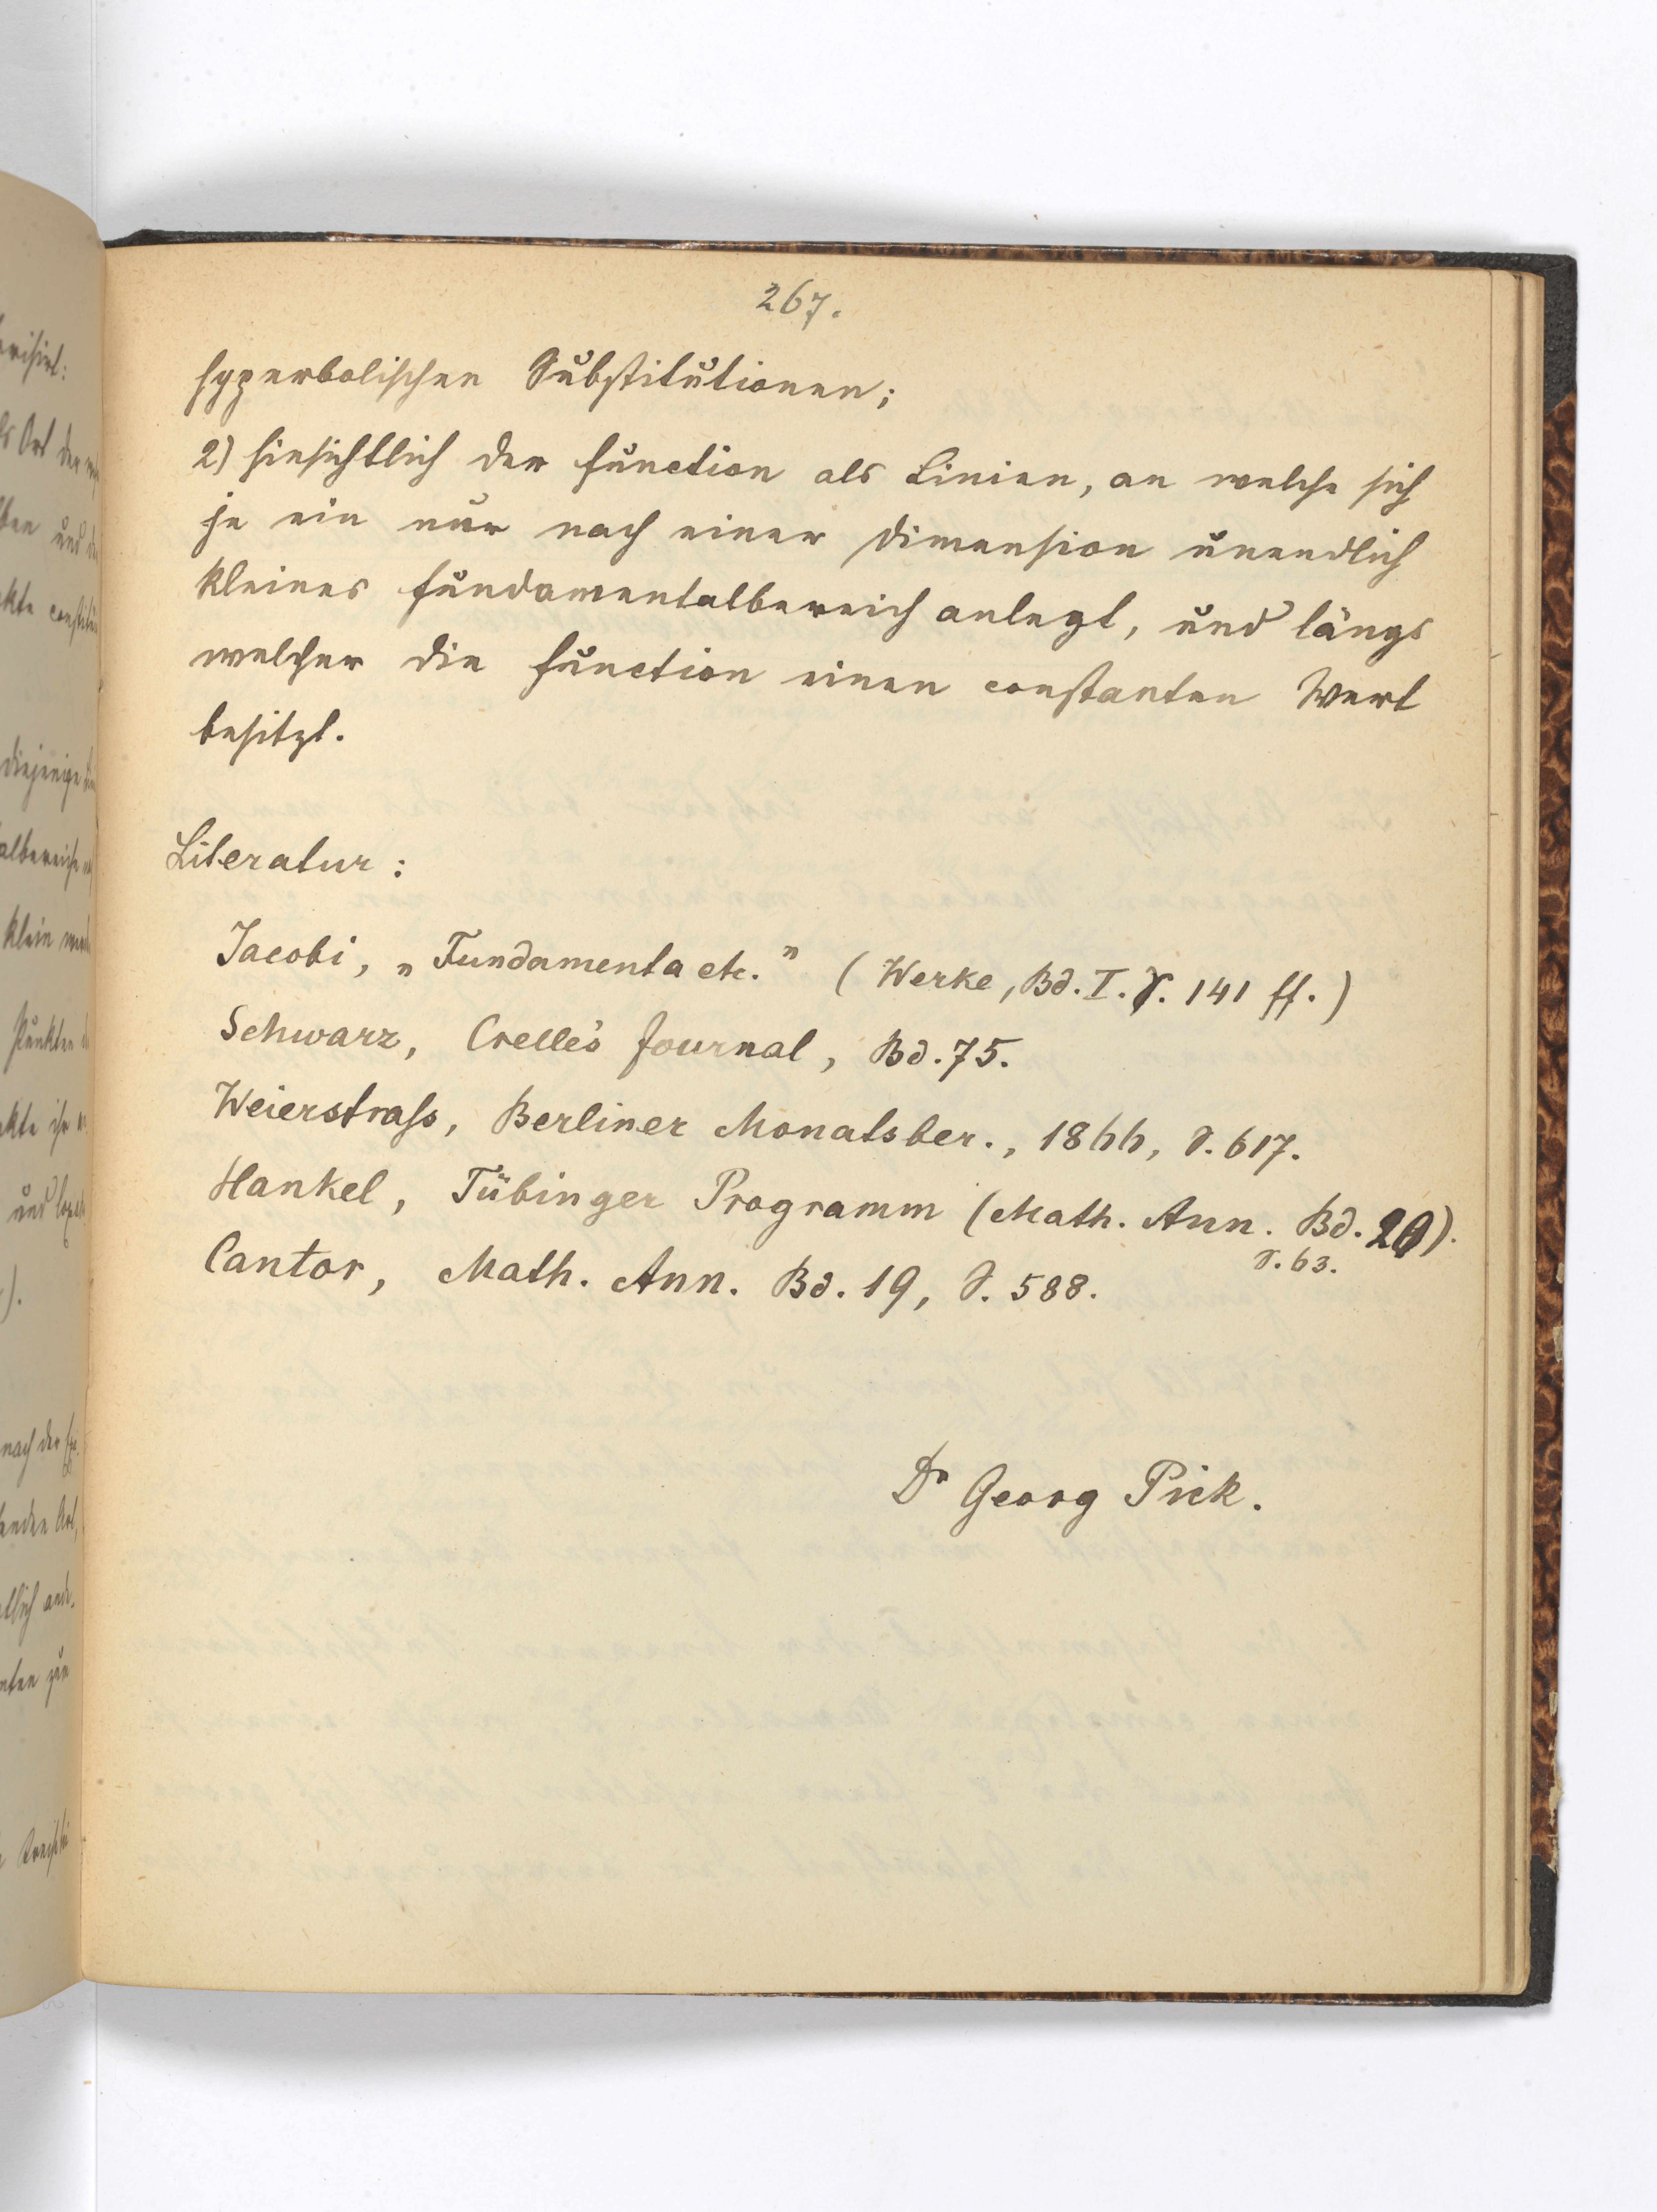 267.
hyperbolischen Substitutionen;
2) hinsichtlich der Function als Linien, an welche sich
je ein nur nach einer Dimension unendlich
kleiner Fundamentalbereich anlegt, und längs
welcher die Function einen constanten Wert
besitzt.
Literatur:
Jacobi, „Fundamenta etc.” (Werke, Bd. I. S. 141 ff.)
Schwarz, Crelle's Journal, Bd. 75.
Weierstraſs, Berliner Monatsber., 1866, S. 617.
Hankel, Tübinger Programm (Math. Ann. Bd. 20).
S. 63.
Cantor, Math. Ann. Bd. 19, S. 588.
Dr Georg Pick.